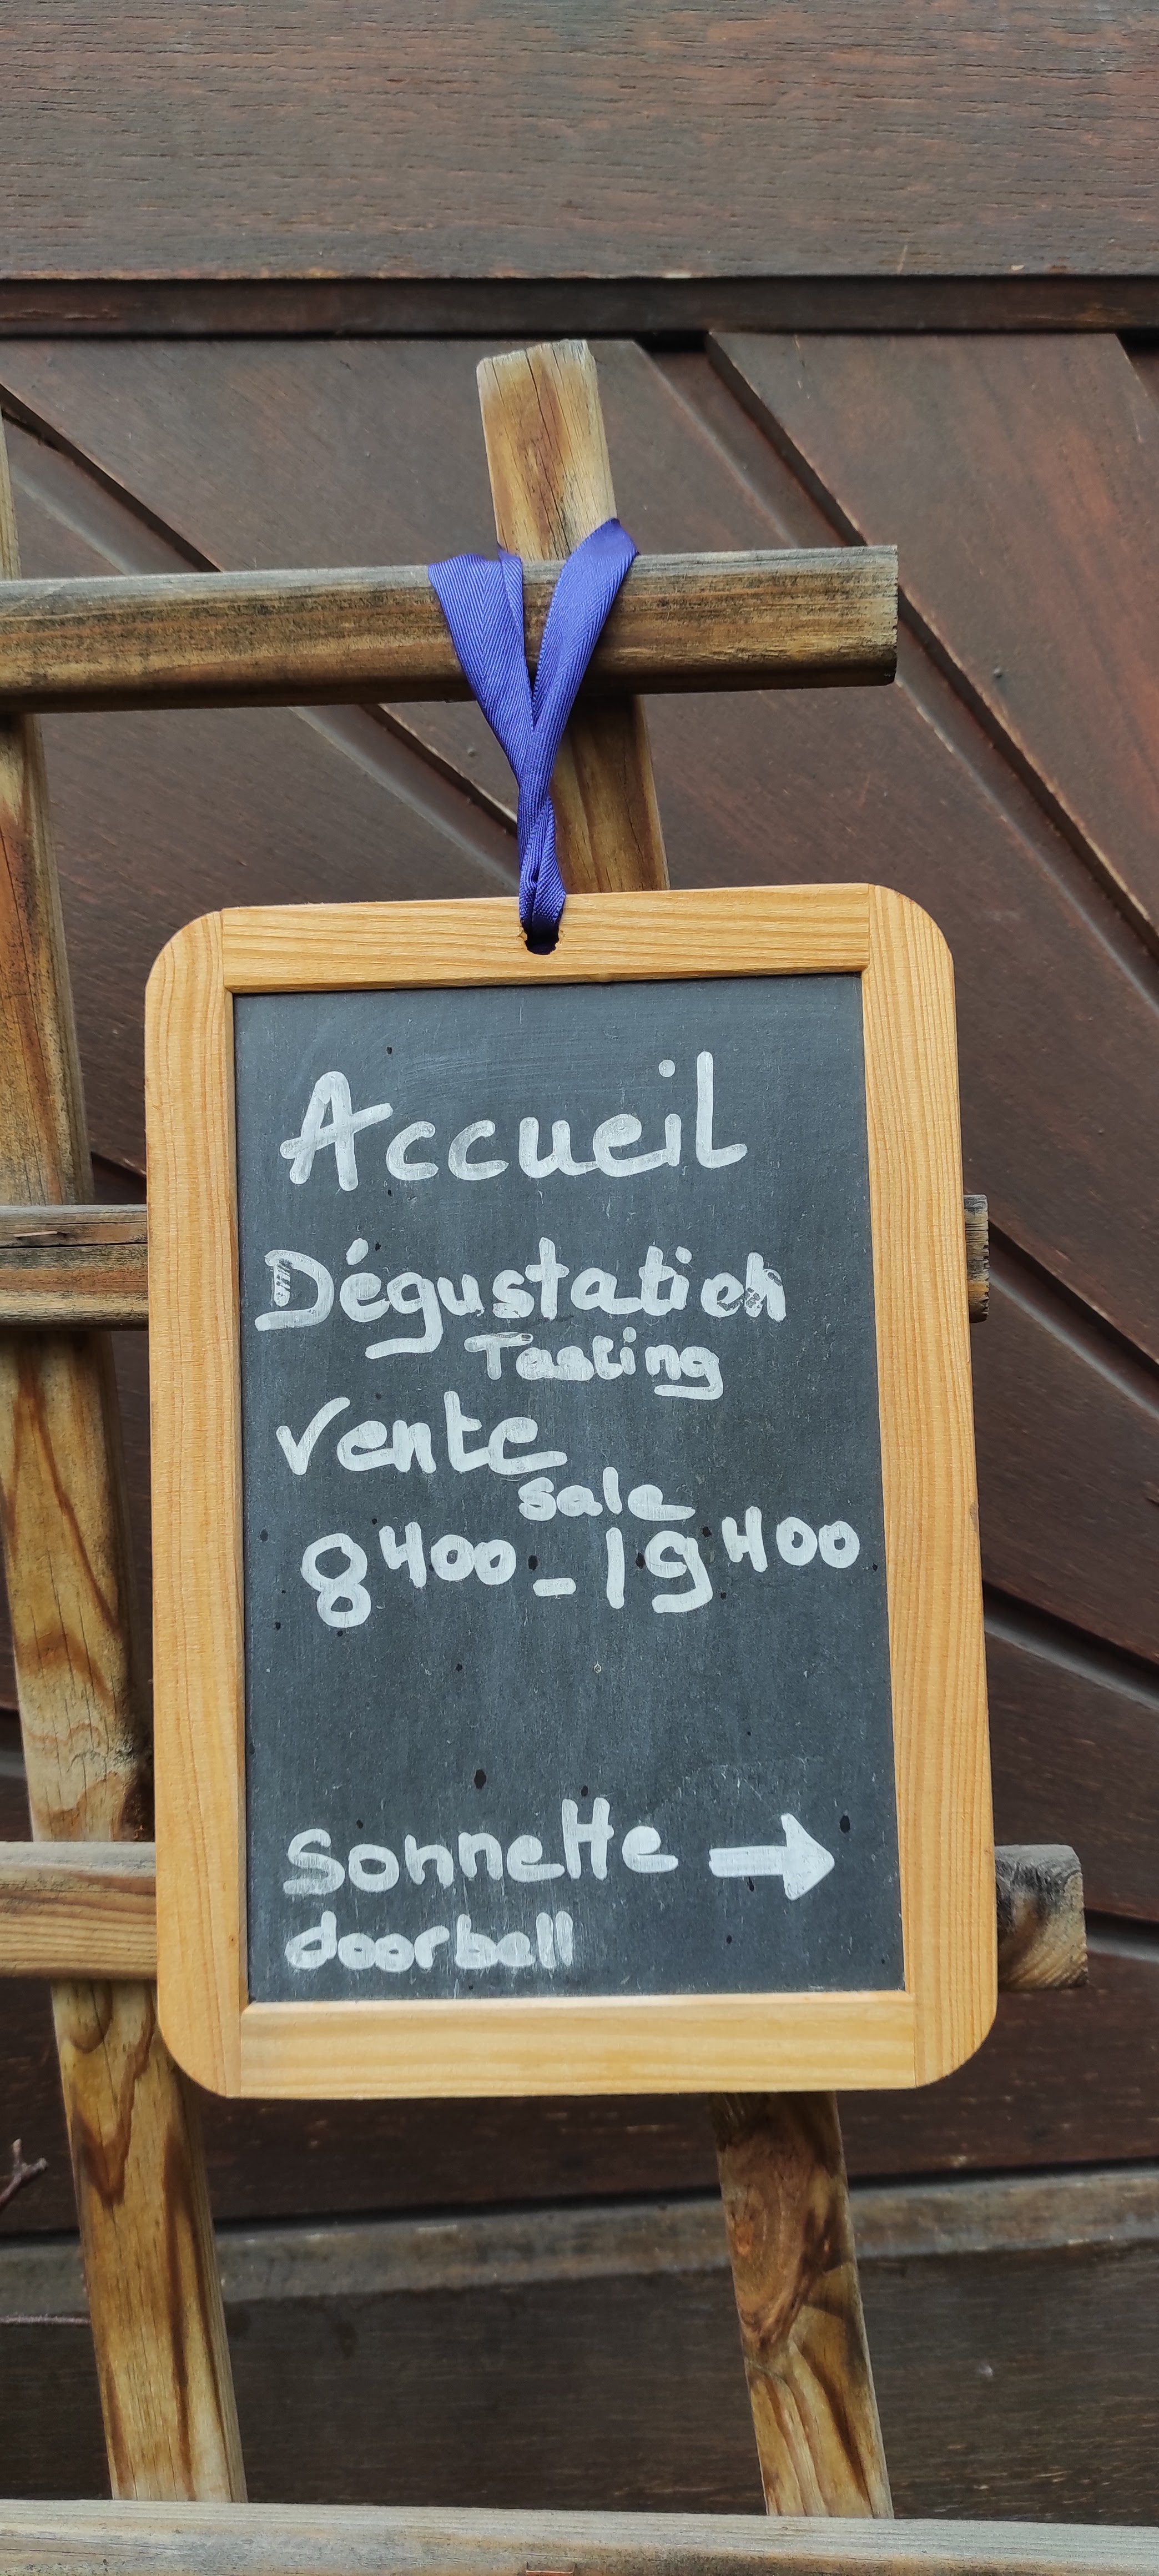 Accueil
Dégustation
Tasting
Vente
sale
8H00 - 19H00
Sonnette →
doorbell